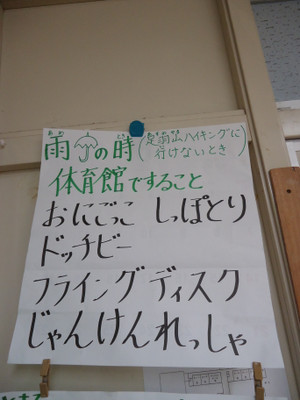 雨の時(足羽山ハイキングに
行けないとき)
体育館ですること
おにごっこ しっぽとり
ドッチビー
フライングディスク
じゃんけんれっしゃ